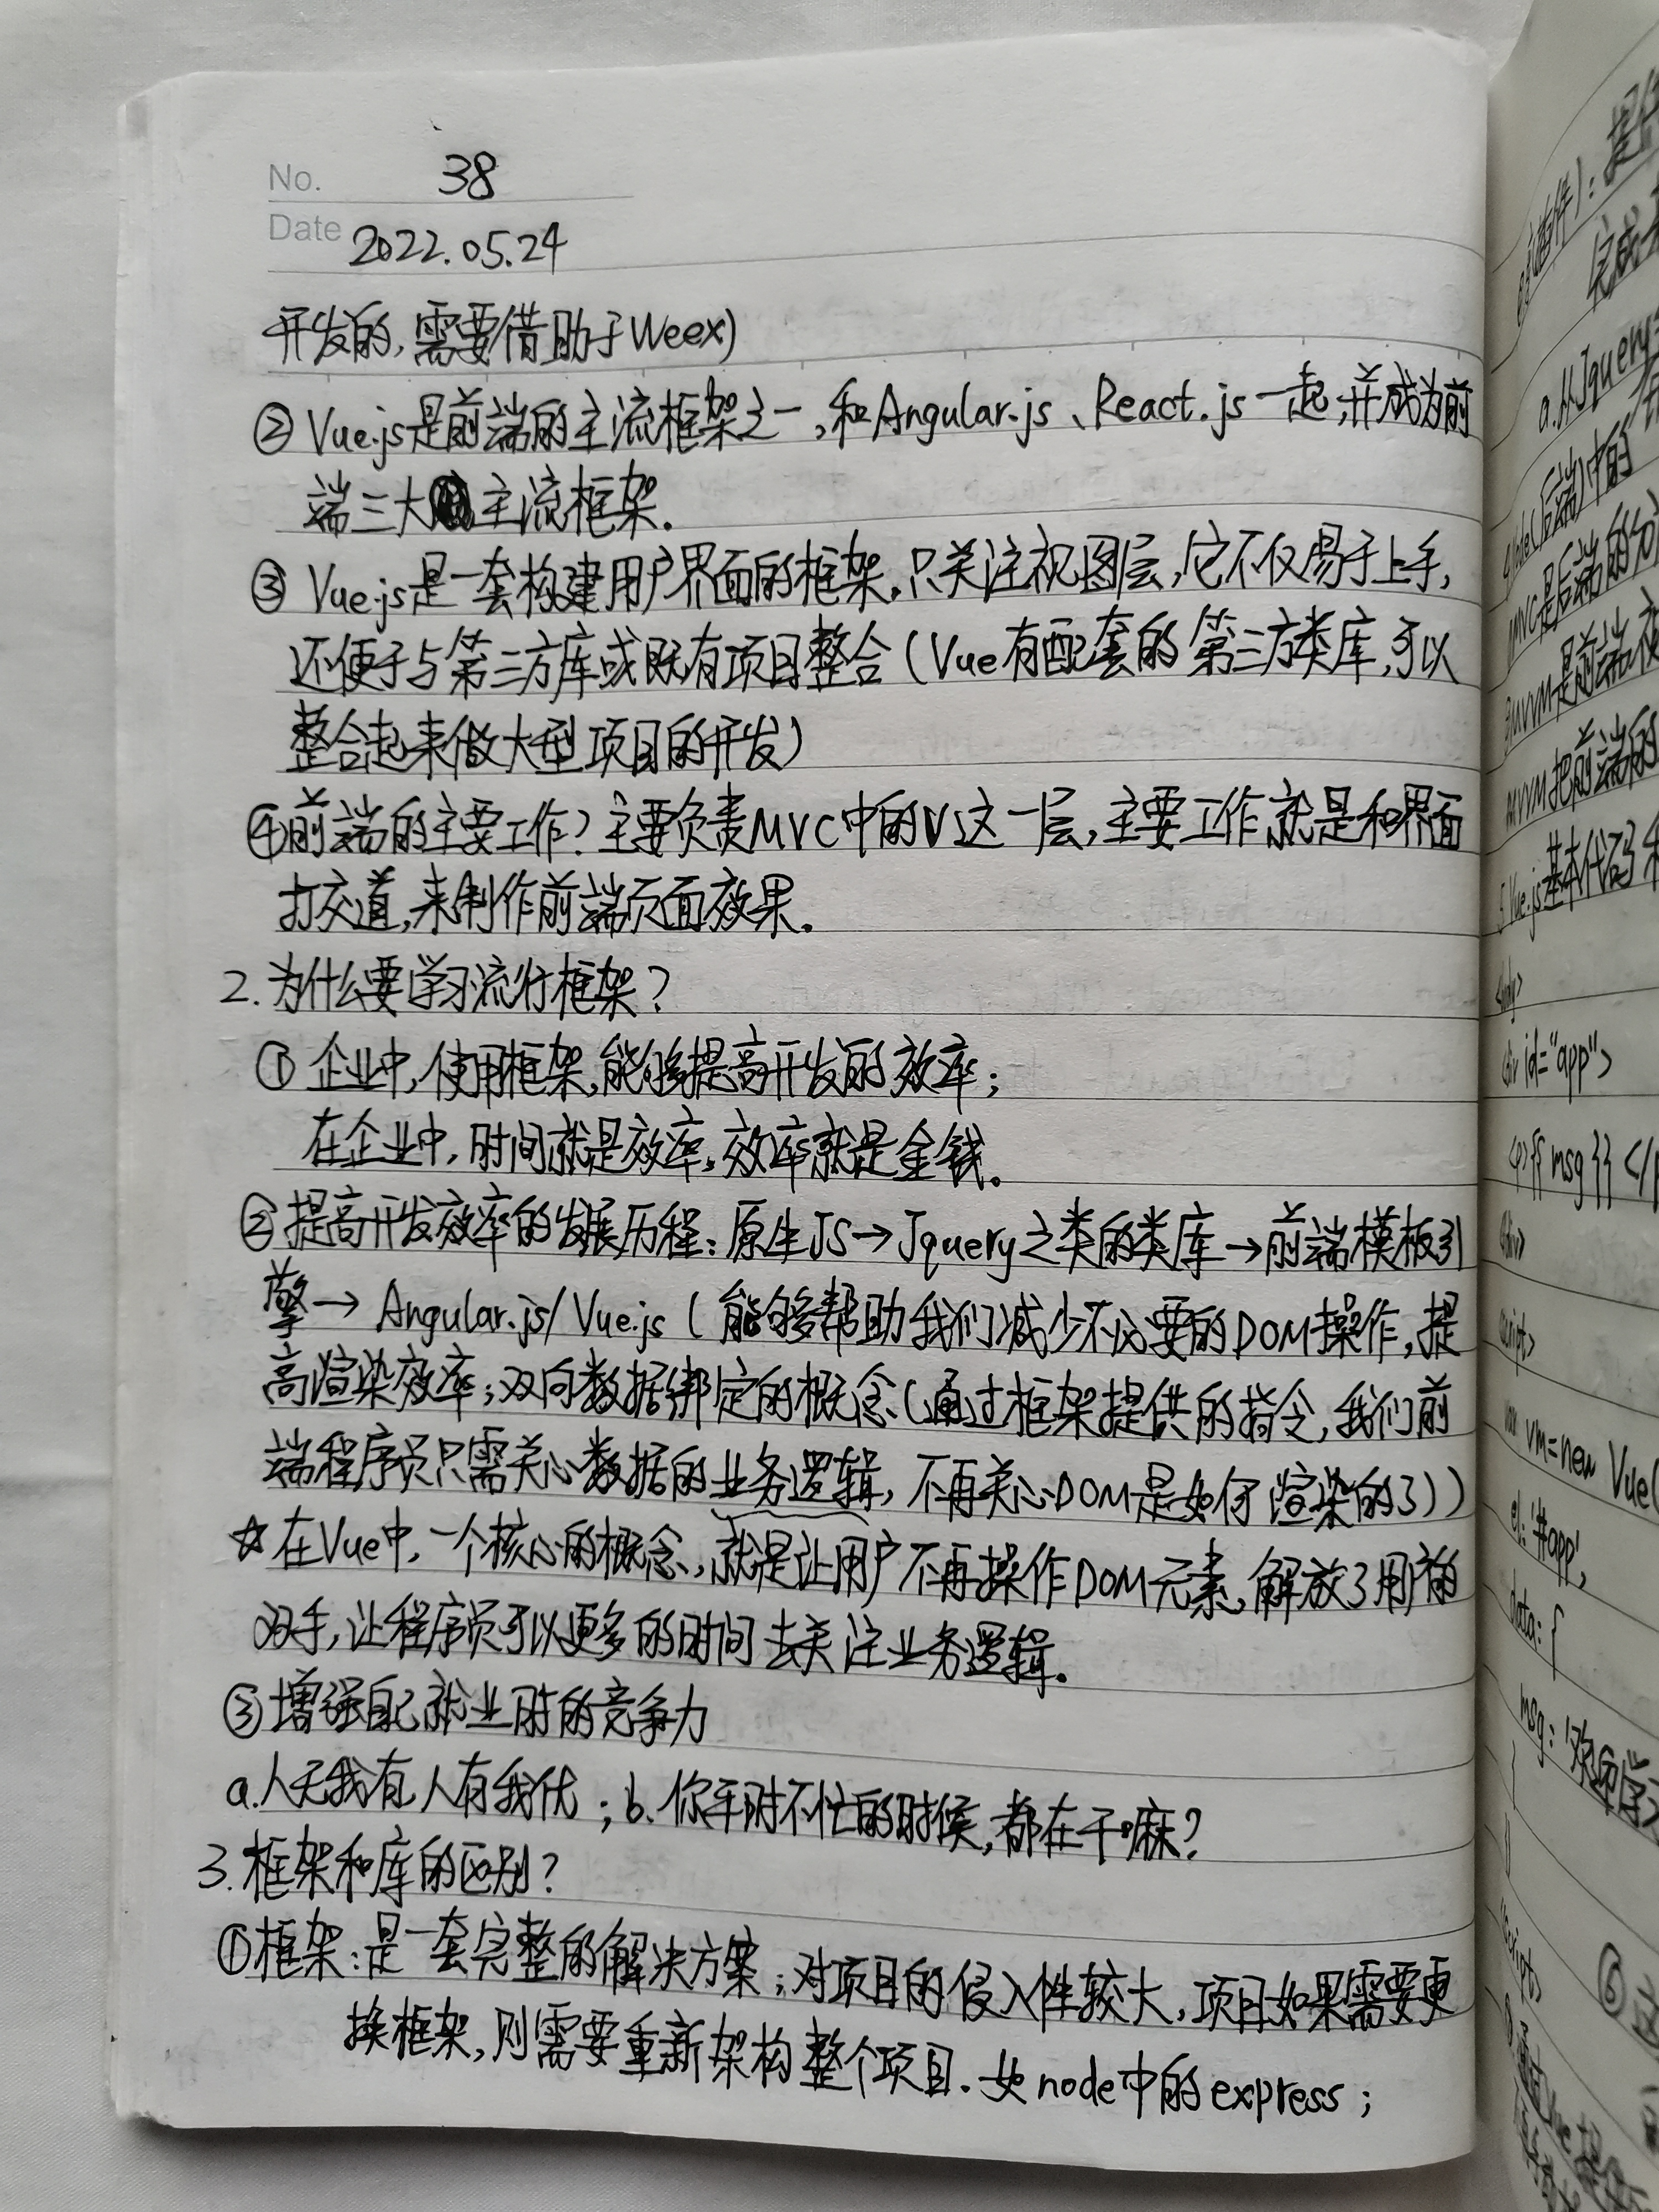 No. 38
Date 2022.05.24
开发的,需要借助于Weex)
② Vue.js是前端的主流框架之一,和Angular.js、React.js一起,并成为前
端三大主流框架.
③ Vue.js是一套构建用户界面的框架,只关注视图层,它不仅易于上手,
还便于与第三方库或既有项目整合(Vue有配套的第三方类库,可以
整合起来做大型项目的开发)
④前端的主要工作?主要负责MVC中的V这一层,主要工作就是和界面
打交道,来制作前端页面效果。
2.为什么要学习流行框架?
① 企业中,使用框架,能够提高开发的效率;
在企业中,时间就是效率,效率就是金钱。
②提高开发效率的发展历程:原生JS→Jquery之类的类库→前端模板引
擎→Angular.js/Vue.js(能够帮助我们减少不必要的DOM操作,提
高渲染效率;双向数据绑定的概念(通过框架提供的指令,我们前
端程序员只需关心数据的业务逻辑,不再关心DOM是如何渲染的了))
☆在Vue中,一个核心的概念,就是让用户不再操作DOM元素,解放了用户的
双手,让程序员可以更多的时间去关注业务逻辑。
③增强自己就业时的竞争力
a.人无我有,人有我优;b.你平时不忙的时候,都在干嘛?
3.框架和库的区别?
①框架:是一套完整的解决方案;对项目的侵入性较大,项目如果需要更
换框架,则需要重新架构整个项目.如node中的express;
(插件):提
完成
a.从Jquery
Node(后端)中的
MVC是后端的分
MVVM是前端视
MVVM把前端的
5.Vue.js基本代码和
<body>
<div id="app">
<p>{{msg}}</p
</div>
<script>
var vm=new Vue(
el:'#app',
data:{
msg:'欢迎学习
}
})
</script>
⑥这